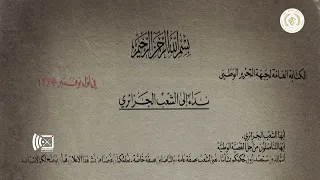 بسم الله الرحمن الرحيم
الكتابة العامة لجبهة التحرير الوطني
في أول نوفمبر 1954
نداء إلى الشعب الجزائري
أيها الشعب الجزائري،
أيها المناضلون من أجل القضية الوطنية